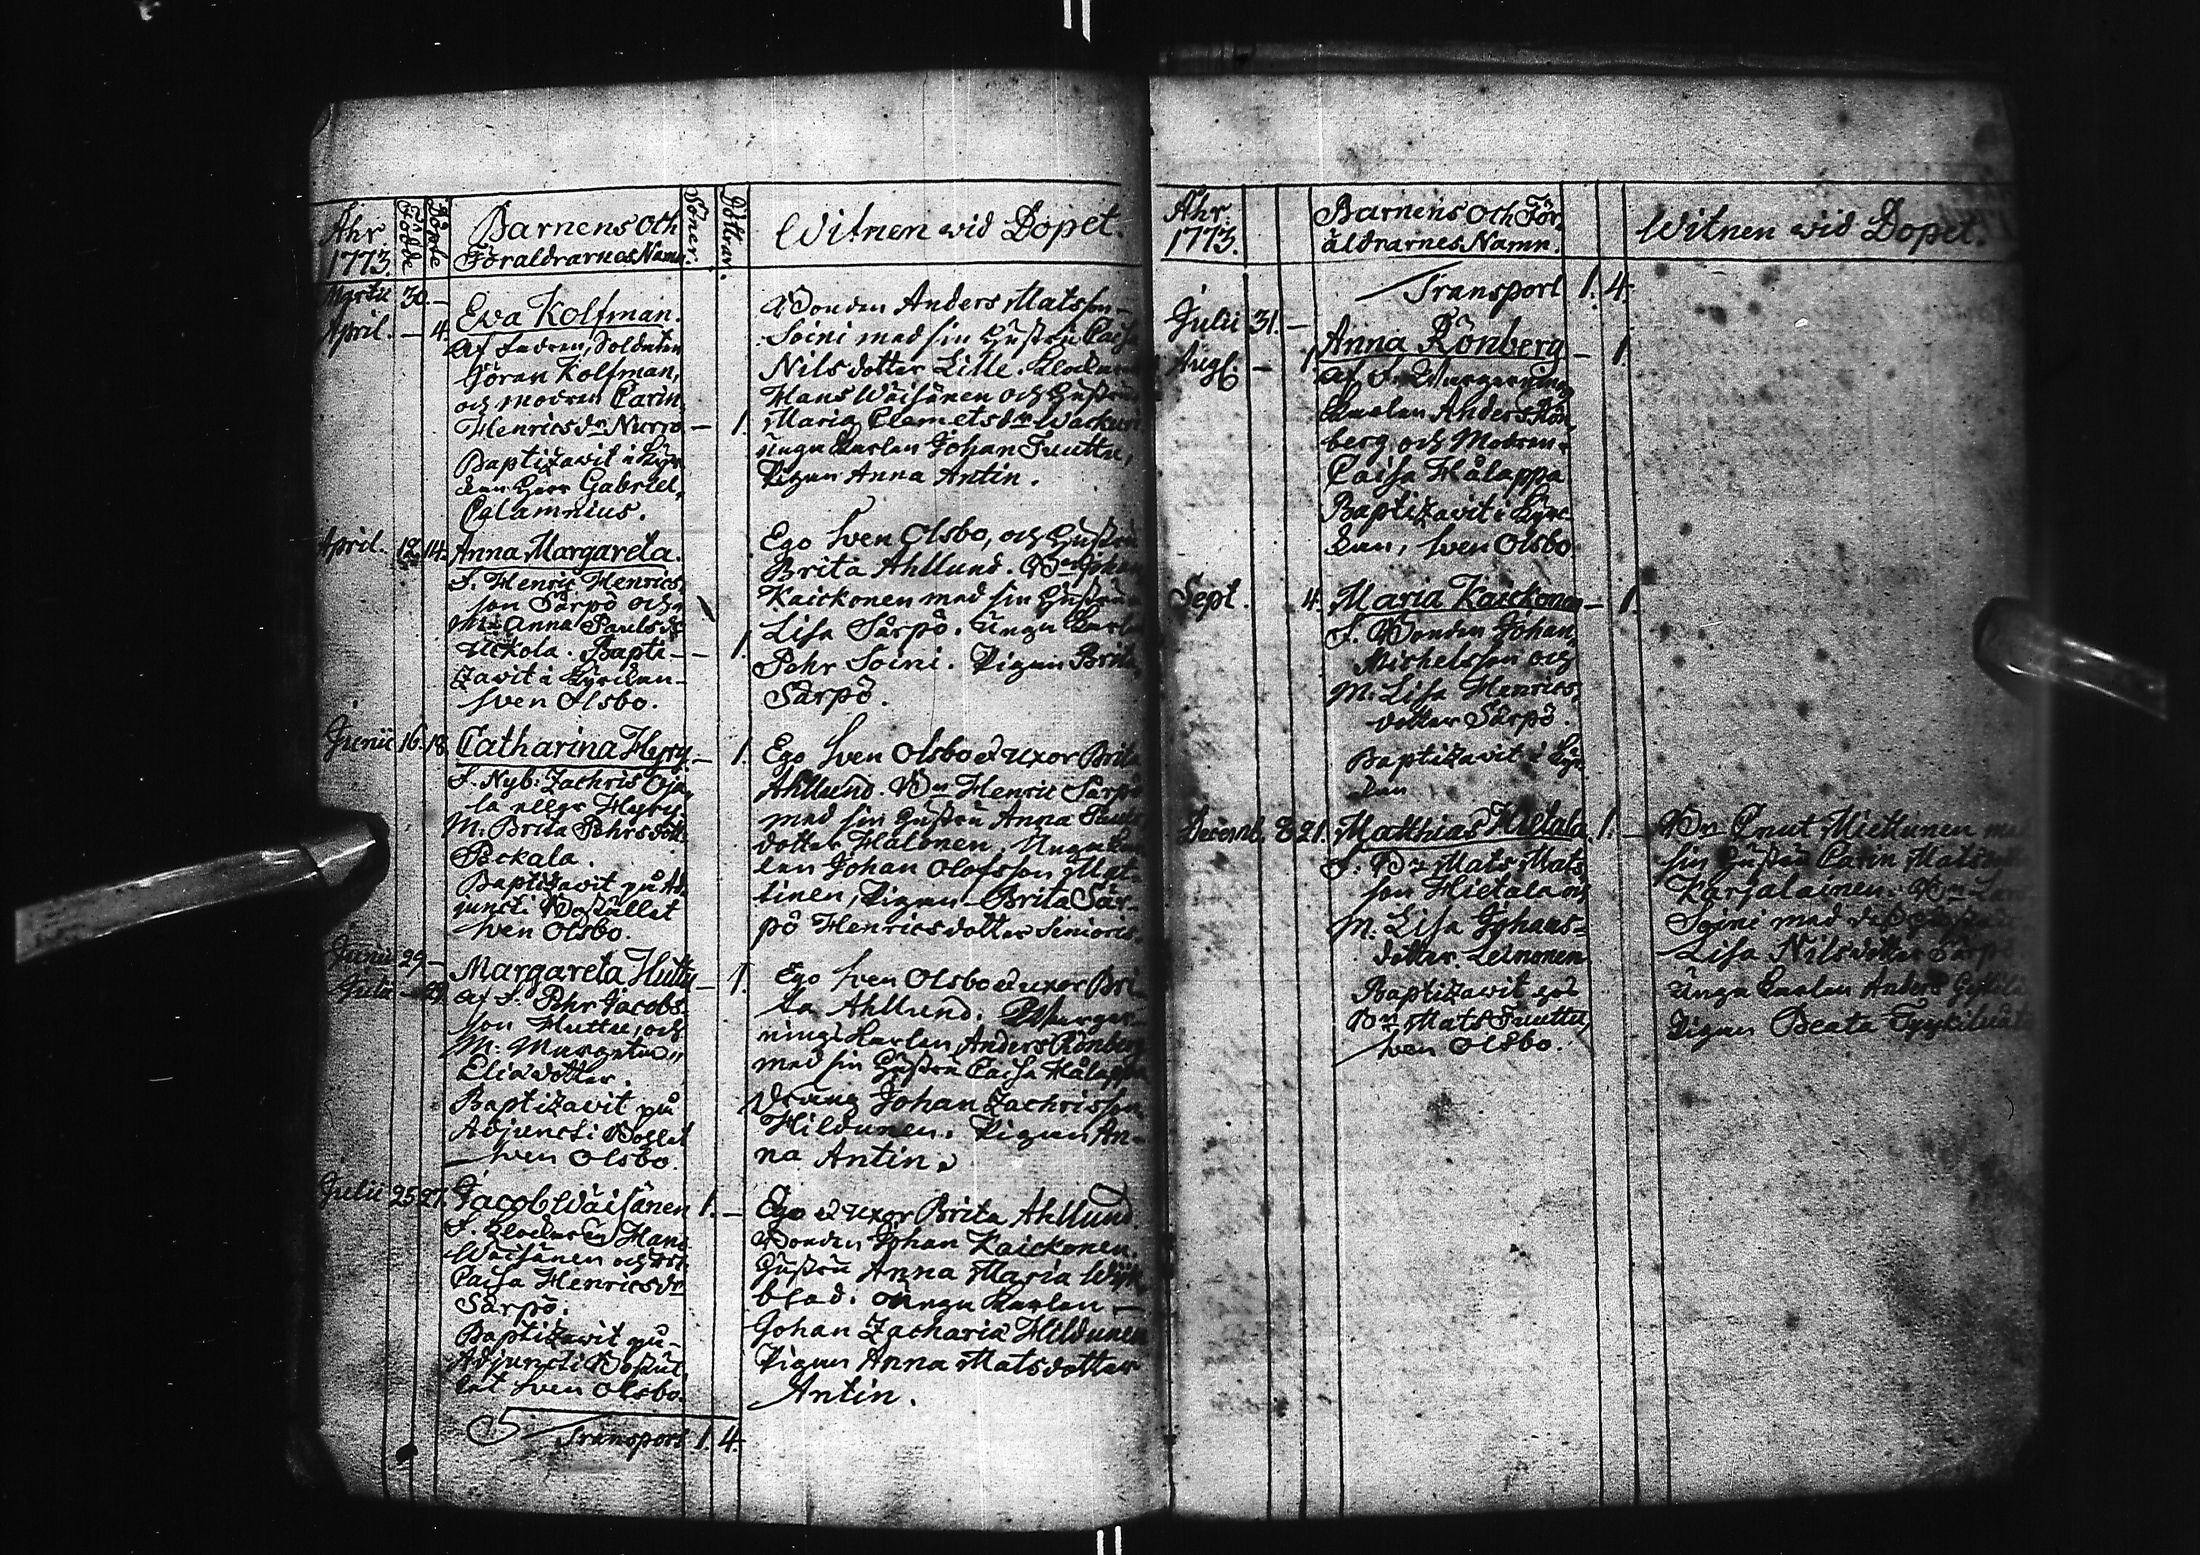 Åhr
1773.
Födde
Döpte
Barnens och
Föräldrarnes Namn.
Söner.
Döttrar.
Witnen wid Dopet.
Martii 30. —
April. — 4.
Eva Kolfman.
Af Fadren, Soldaten
Göran Kolfman,
och modren Carin
Henricsdr Nurro — 1.
Baptizavit i Kyr
kan Herr Gabriel
Calamnius.
Bonden Anders Matsson
Soini med sin Hustru Caisa
Nilsdotter Lille. Klockaren
Hans Wäisänen och Hustru
Maria Clemetsdr Wackuri
unga Karlen Johan Tuuttu,
Pigan Anna Antin.
April. 12. 14.
Anna Margareta.
F. Henric Henrics
son Särpö och
M. Anna Paulsdr
Uckola. Bapti — 1.
zavit i Kyrckan
Sven Olsbo.
Ego Sven Olsbo, och Hustru
Brita Ahllund. Bn Johan
Kaickonen med sin Hustru
Lisa Särpö. Unga Karlen
Pehr Soini. Pigan Brita
Särpö.
Junii 16. 18.
Catharina Hyry — 1.
F. Nyb: Zachris Oja
la eller Hyry
M. Brita Pehrsdott
Peckala.
Baptizavit på Ad
juncti Bostället
Sven Olsbo.
Ego Sven Olsbo et uxor Brita
Ahllund. Bn Henric Särpö
med sin Hustru Anna Pauls
dotter Halonen. Unga Kar
len Johan Olofsson Mat
tinen, Pigan Brita Sär
pö Henricsdotter Senioris.
Junii 29 —
Julii — 29.
Margareta Huttu — 1.
af F. Pehr Jacobs
son Huttu, och
M. Margeta
Eliædotter.
Baptizavit på
Adjuncti Bostet
Sven Olsbo.
Ego Sven Olsbo et uxor Bri
ta Ahllund. Wargee
nings Karlen Anders Rönberg
med sin Hustru Caisa Hålappa
Dräng Johan Zachrisson
Hildunen. Pigan An
na Antin.
Julii 25 27.
Jacob Wäisänen 1. —
F. Klockaren Hans
Wäisänen och
Caisa Henricsdr
Särpö.
Baptizavit på
Adjuncti Bostäl
let Sven Olsbo.
Ego et uxor Brita Ahllund.
Bonden Johan Kaickonen.
Hustru Anna Maria Wijk
blad. Unga Karlen
Johan Zachariæ Hildunen
Pigan Anna Matsdotter
Antin.
Transport 1. 4.
Åhr.
1773.
Barnens och För
äldrarnes Namn.
Witnen wid Dopet.
Transport 1. 4.
Julii 31. —
Augl. — 1
Anna Rönberg — 1
Karlen Anders Rön
berg och Modren
Caisa Hålappa
Baptizavit i Kyrc
kan, Sven Olsbo
Sept. 4.
Maria Kaickonen — 1.
F. Bonden Johan
Michelsson och
M. Lisa Henrics
dotter Särpö.
Baptizavit i Kyr
kan
Decemb. 8 21.
Matthias Hietala. 1. —
F. Bn Mats Mats
son Hietala och
M. Lisa Johans
dotter Leinonen
Baptizavit hos
Bn Mats Tuuttu,
Sven Olsbo.
Bn Cnut Miettunen med
sin Hustru Carin Matsdotter
Karjalainen. Bn
Soini med dess Hustru
Lisa Nilsdotter Särpö
Unga Karlen Anders
Pigan Beata